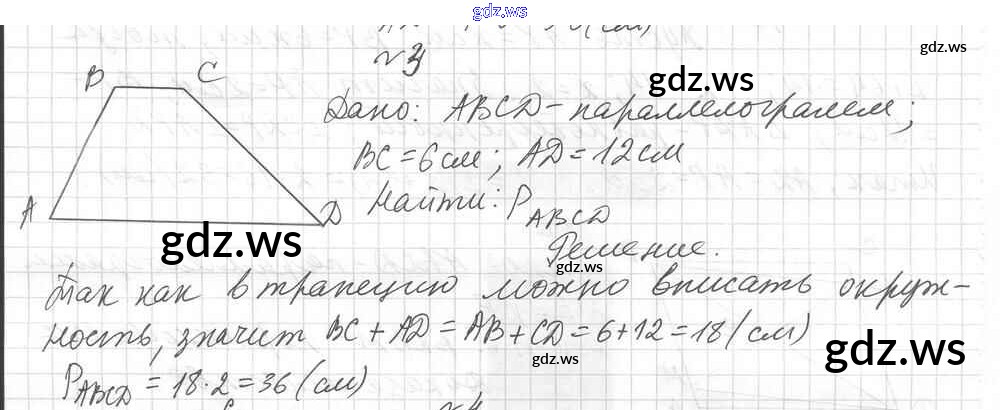 gdz.ws
№3
gdz.ws
B C
gdz.ws
Дано: ABCD - параллелограмм;
BC = 6 см; AD = 12 см
Найти: P_ABCD
A D
gdz.ws
Решение.
gdz.ws
Так как в трапецию можно вписать окруж-
ность, значит BC + AD = AB + CD = 6 + 12 = 18 (см)
gdz.ws
gdz.ws
P_ABCD = 18 · 2 = 36 (см)
№4